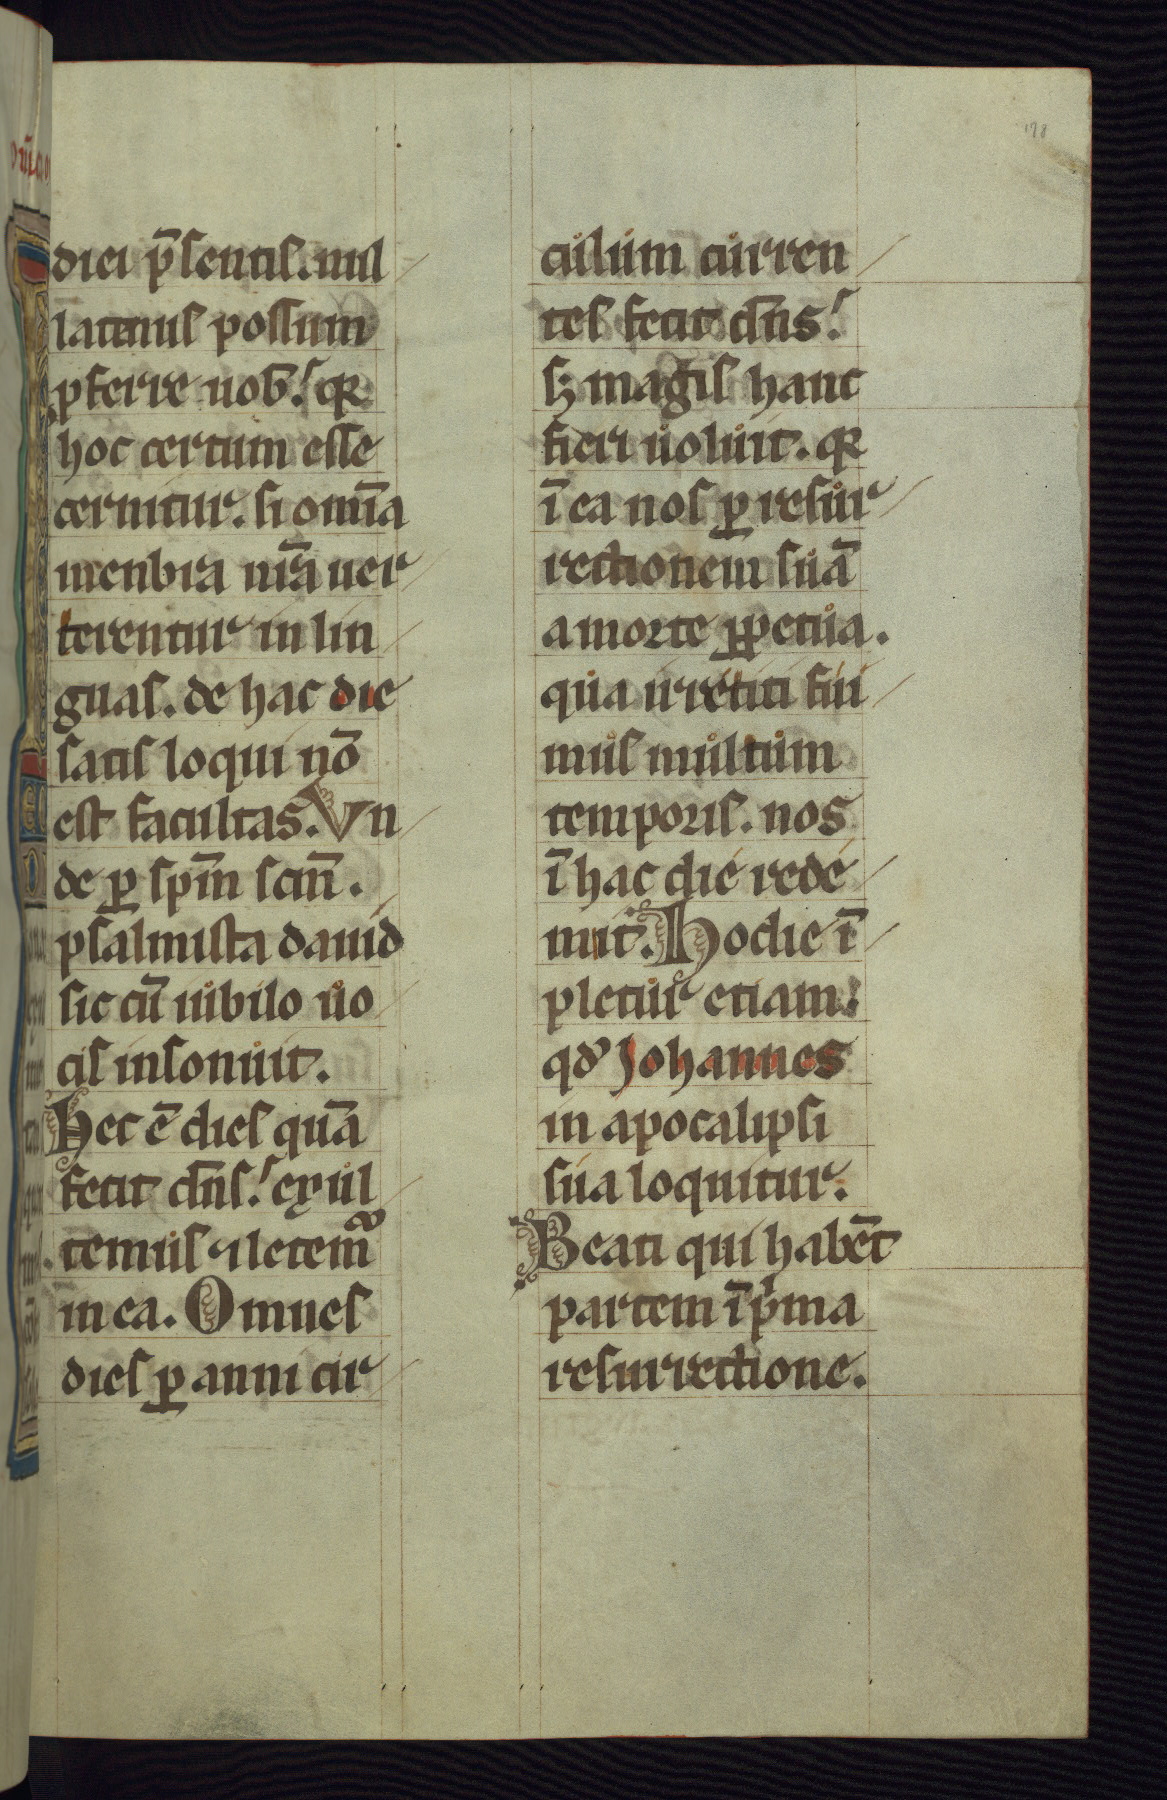 178
diei p̄sentis. nul
latenus possum
ꝓferre uob̄. qꝛ
hoc certum esse
cernitur. si om̄ia
menbra nr̄a uer
terentur in lin
guas. de hac die
satis loqui nō
est facultas. Vn
de ꝑ sp̄m sc̄m.
psalmista dauid
sic cū iubilo uo
cis insonuit.
Hec ē dies quā
fecit dn̄s. exul
temus ⁊ letem᷒
in ea. Omnes
dies ꝑ anni cir
culum curren
tes fecit dn̄s.
sꝫ magis hanc
fieri uoluit. qꝛ
ī ea nos ꝑ resur
rectionem suā
a morte ꝑpetua.
qua irretiti fui
mus multum
temporis. nos
ī hac die rede
mit. Hodie ī
pletur etiam.
qđ Johannes
in apocalipsi
sua loquitur.
Beati qui habēt
partem ī pͥma
resurrectione.